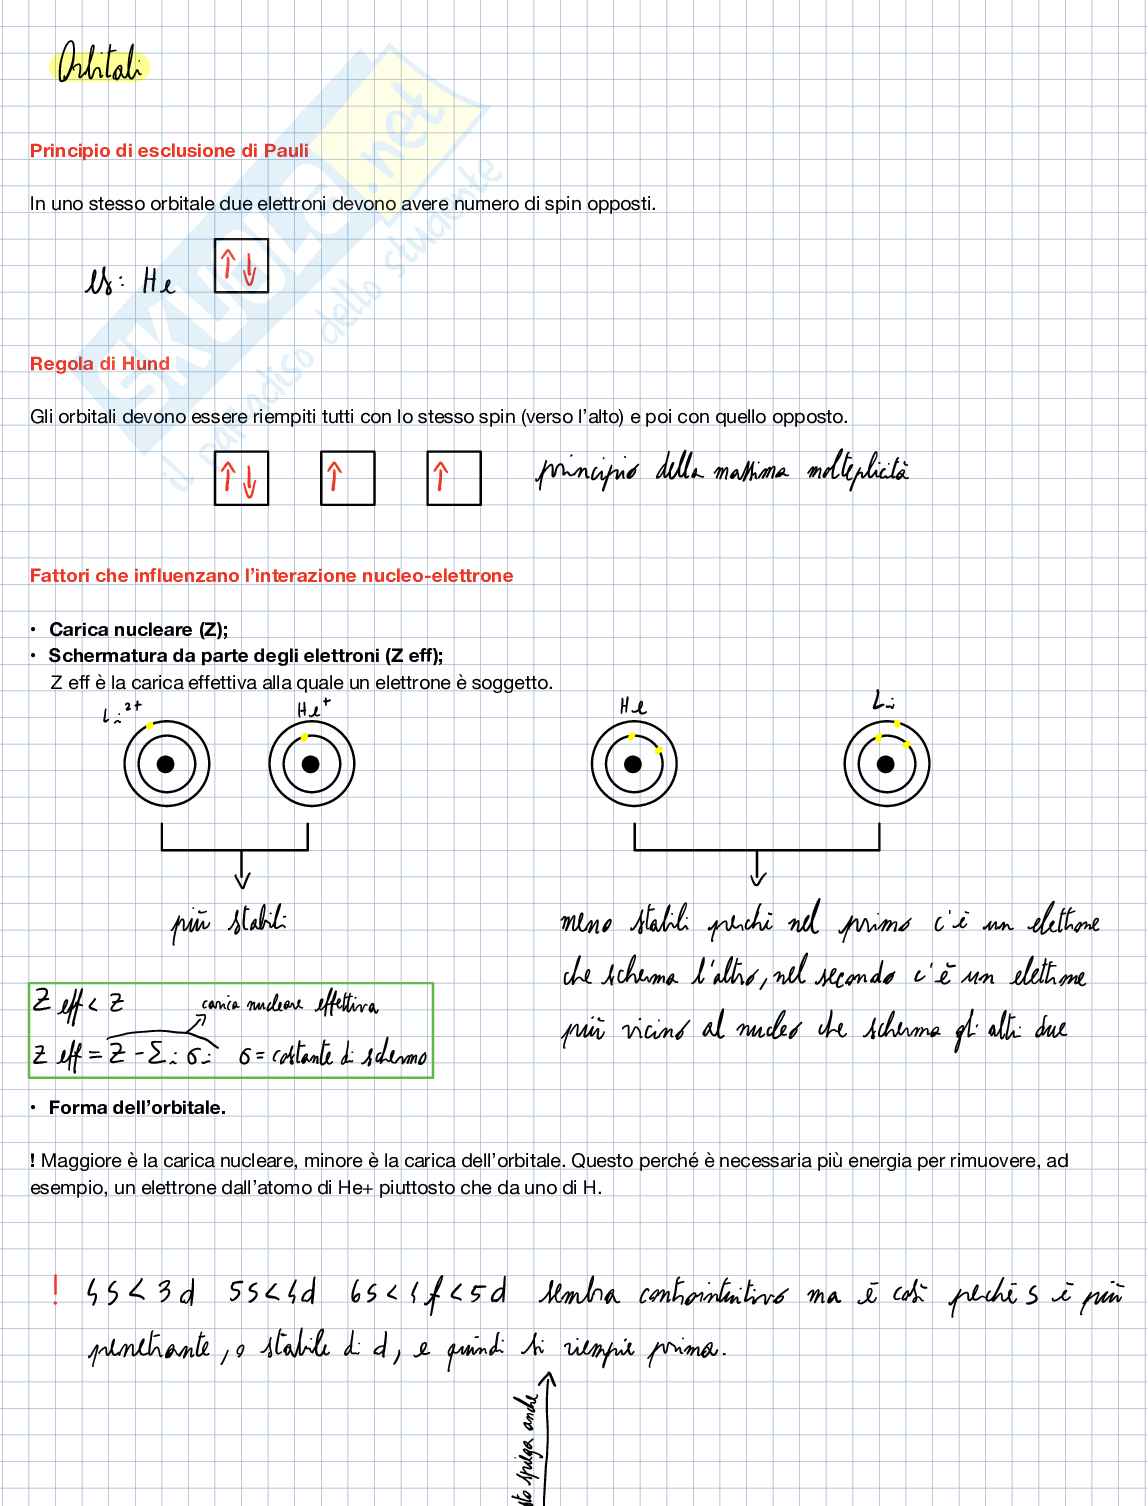 Orbitali
SKUOLA.net
il paradiso dello studente
Principio di esclusione di Pauli
In uno stesso orbitale due elettroni devono avere numero di spin opposti.
es: He
Regola di Hund
Gli orbitali devono essere riempiti tutti con lo stesso spin (verso l'alto) e poi con quello opposto.
principio della massima molteplicità
Fattori che influenzano l'interazione nucleo-elettrone
• Carica nucleare (Z);
• Schermatura da parte degli elettroni (Z eff);
Z eff è la carica effettiva alla quale un elettrone è soggetto.
Li²⁺ He⁺ He Li
più stabili
meno stabili perché nel primo c'è un elettrone
che scherma l'altro, nel secondo c'è un elettrone
più vicino al nucleo che scherma gli altri due
Z eff < Z carica nucleare effettiva
Z eff = Z - Σi σi σ = costante di schermo
• Forma dell'orbitale.
! Maggiore è la carica nucleare, minore è la carica dell'orbitale. Questo perché è necessaria più energia per rimuovere, ad
esempio, un elettrone dall'atomo di He+ piuttosto che da uno di H.
! 4s < 3d 5s < 4d 6s < 4f < 5d sembra controintuitivo ma è così perché s è più
penetrante, o stabile di d, e quindi si riempie prima.
spiega anche